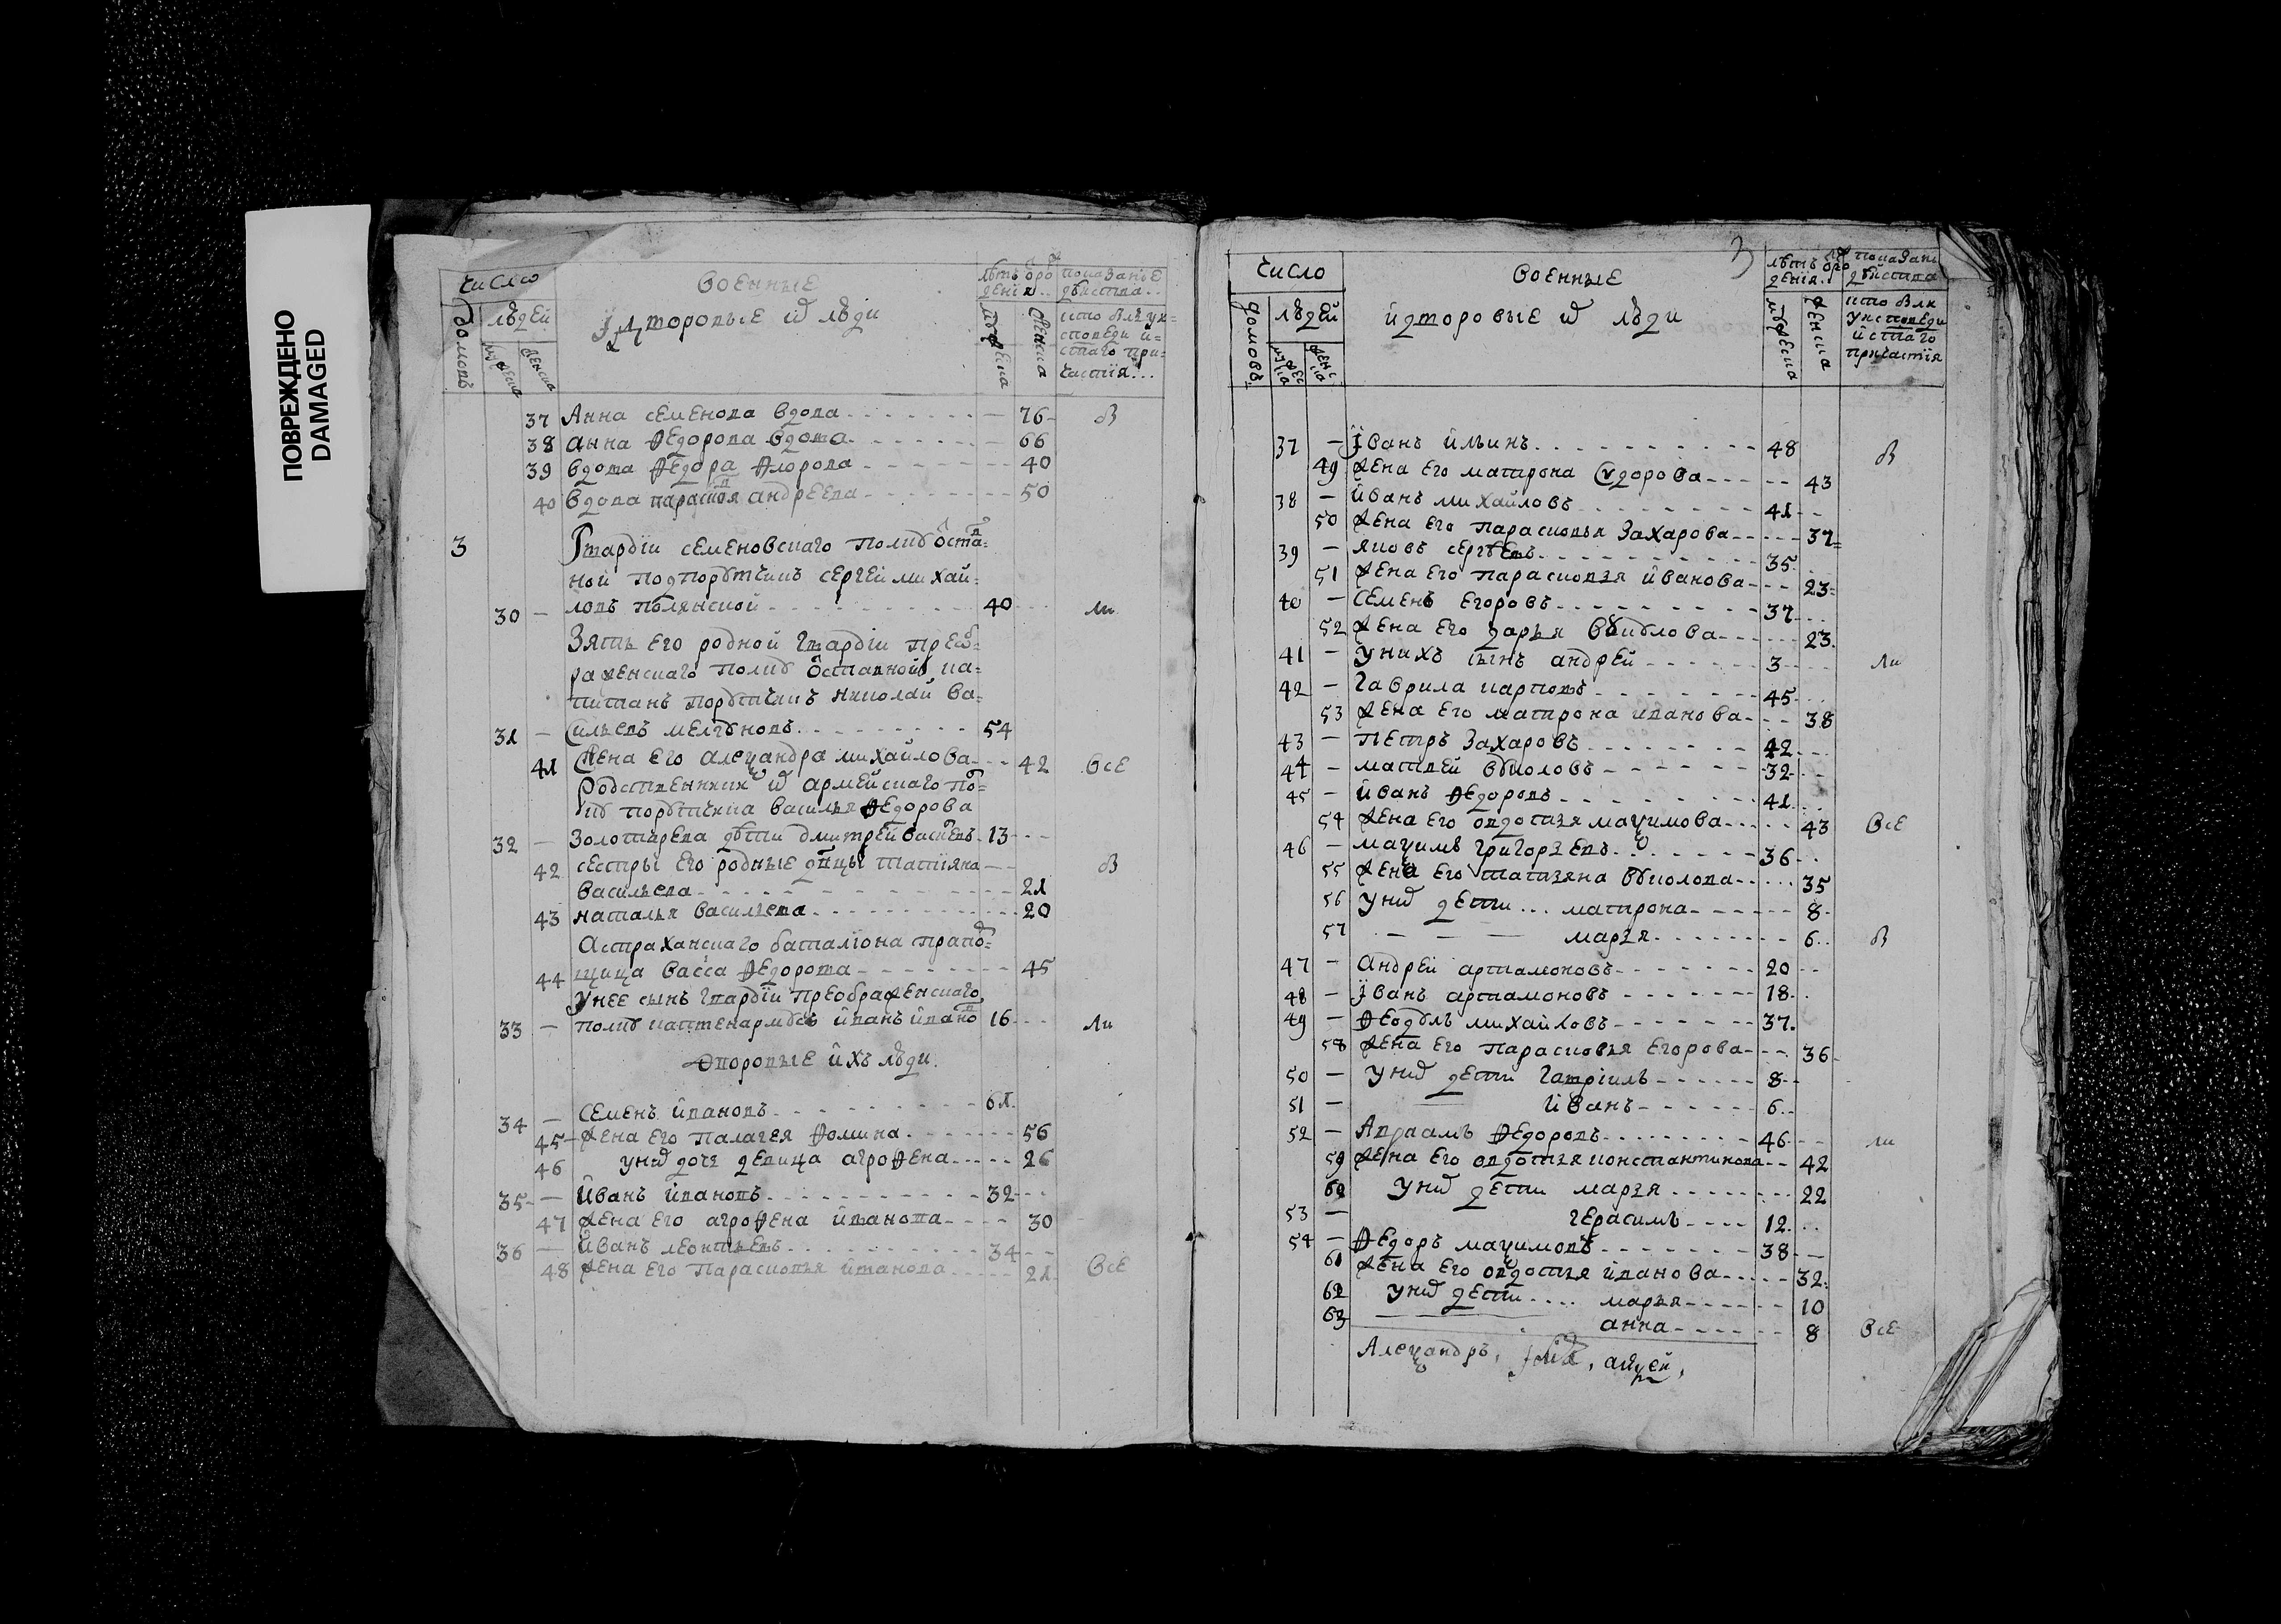 ПОВРЕЖДЕНО
DAMAGED
число
военные
лѣтъ ѿ ро
показание
домовъ
людей
и дворовые их люди
дения
дѣйства
мужеска
женска
мужеска
женска
кто был у ис
поведи и с
таго при
частия
37 Анна семенова вдова 76 в
38 анна Ѳедорова вдова 66
39 вдова Ѳедора Ѳлорова 40
40 вдова парасковя андреева 50
3 Гвардіи семеновскаго полку ѿстав
ной подпорутчикъ сергей михаи
30 — ловъ полянской 40 ли
Зять его родной гвардіи преоб
раженскаго полку ѿставной ка
питанъ порутчикъ николай ва
31 — сильевъ мелгуновъ 54
41 жена его алеѯандра михайлова 42 все
Родственники их армейскаго по
лку порутчика василья Ѳедорова
32 — золотарева дѣти дмитрей васильевъ 13
42 сестры его родные двцы татіяна
васильева 21 в
43 наталья васильева 20
Астраханскаго баталіона прапо
44 щица васса Ѳедорова 45
у нее сынъ гвардіи преображенскаго
33 — полку каптенармусъ иванъ ивано 16 ли
дворовые ихъ люди
34 — семенъ ивановъ 61
45 жена его палагея Ѳомина 56
46 у них дочь девица агроѲена 26
35 — иванъ ивановъ 32
47 жена его агроѲена иванова 30
36 — иванъ леонтьевъ 34
48 жена его парасковья иванова 21 все
3
число
военные
лѣтъ ѿ ро
показани
домовъ
людей
и дворовые их люди
дения
дѣйства
мужеска
женска
мужеска
женска
кто был
у исповеди
и с таго
причастія
37 — Іванъ ильинъ 48 в
49 жена его матрона Ѳедорова 43
38 — иванъ михайловъ 41
50 жена его парасковья захарова 37
39 — яковъ сергѣевъ 35
51 жена его парасковья иванова 23
40 — семенъ егоровъ 37
52 жена его дарья вуколова 23
41 — у нихъ сынъ андрей 3 ли
42 — гаврила карповъ 45
53 жена его матрона иванова 38
43 — петръ захаровъ 42
44 — матвей вуколовъ 32
45 — иванъ Ѳедоровъ 41
54 жена его овдотья маѯимова 43 все
46 — маѯимъ григорьевъ 36
55 жена его татьяна вуколова 35
56 у них дети матрона 8
57 марья 6 в
47 — андрей артамоновъ 20
48 — Іванъ артамоновъ 18
49 — Ѳеодулъ михайловъ 37
58 жена его парасковья егорова 36
50 — у них дети гавріилъ 8
51 — иванъ 6
52 — Авраамъ Ѳедоровъ 46 ли
59 жена его овдотья константинова 42
60 у них дети марья 22
53 — герасимъ 12
54 — Ѳедоръ маѯимовъ 38
61 жена его овдотья иванова 32
62 у них дети марья 10
63 анна 8 все
Алеѯандръ